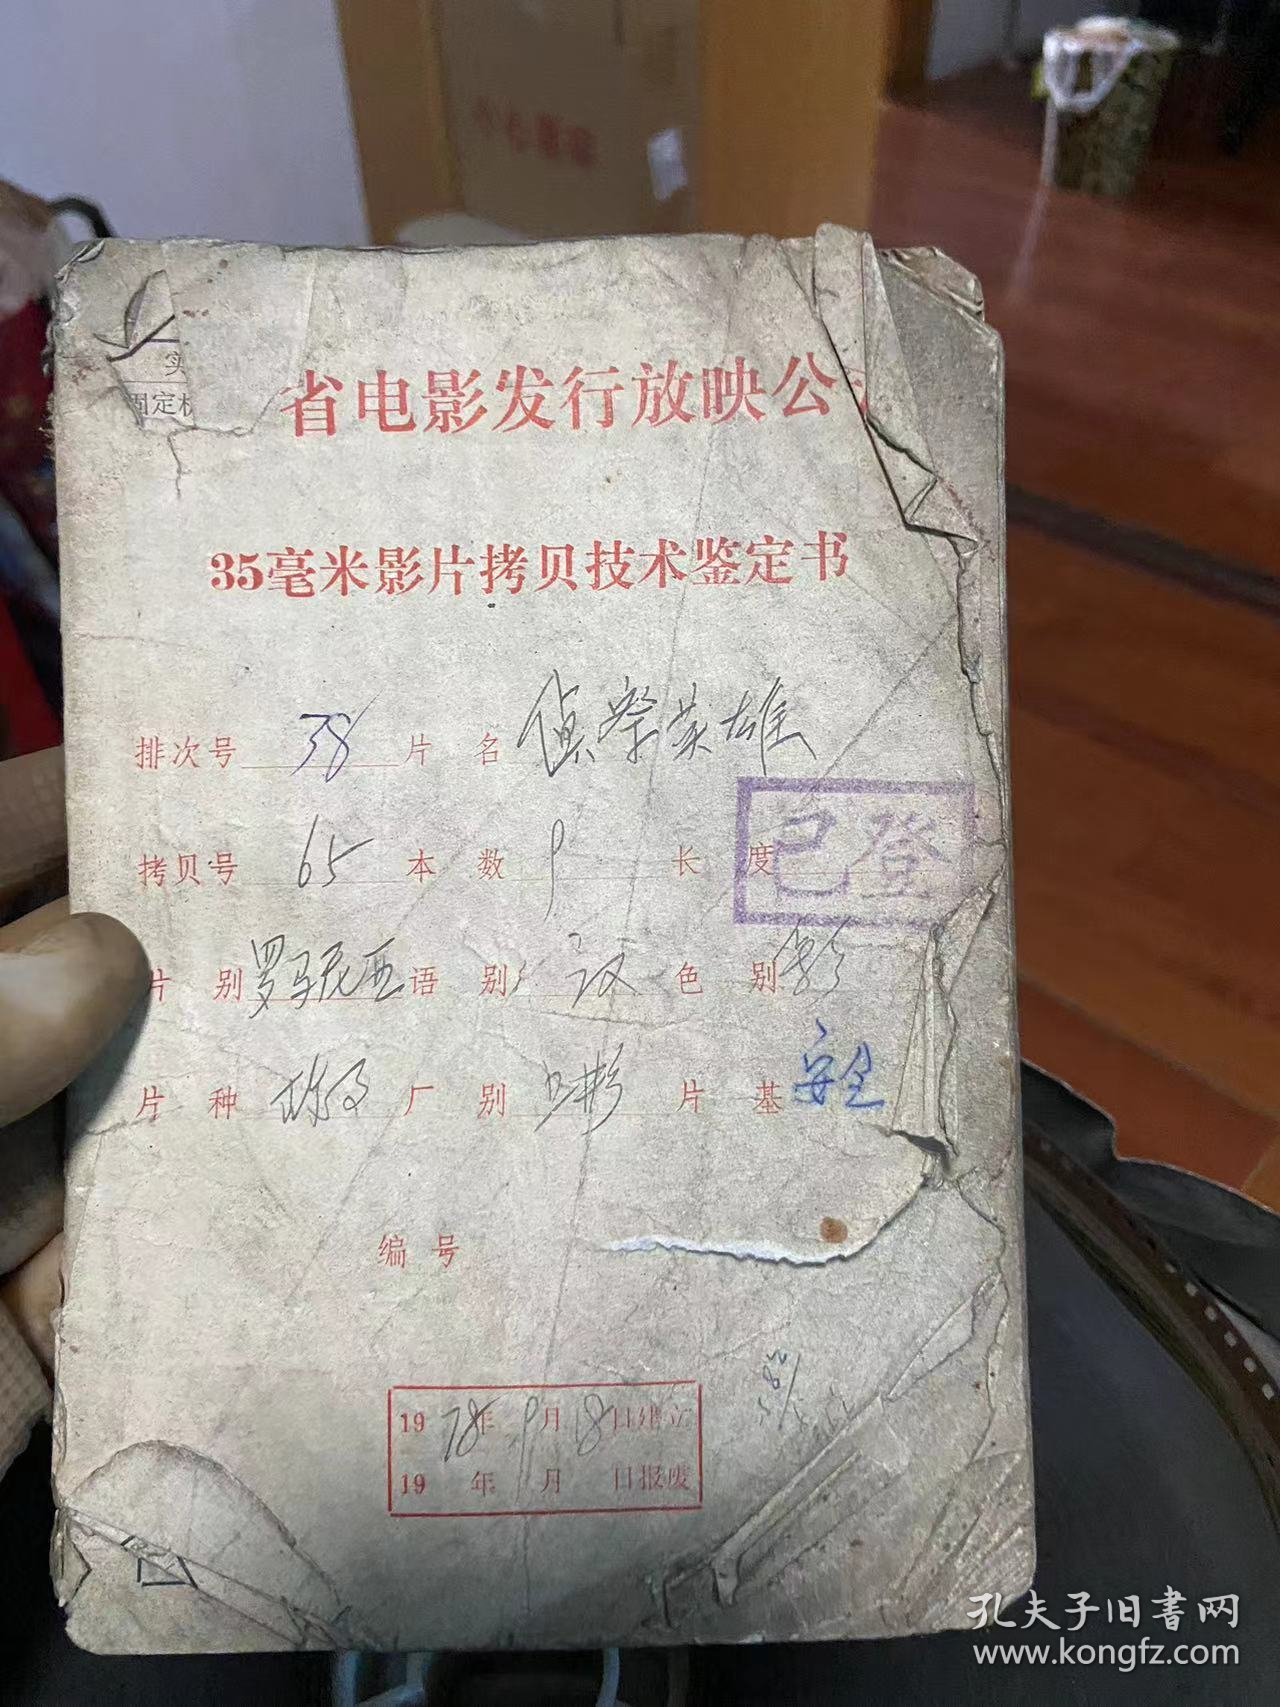 实
固定
省电影发行放映公
35毫米影片拷贝技术鉴定书
排次号 38 片名 侦察英雄
拷贝号 65 本数 9 长度
已登
片别 罗马尼亚 语别 汉 色别 彩
片种 厂别 片基 安全
编号
1978年9月18日建立
19 年 月 日报废
孔夫子旧书网
www.kongfz.com